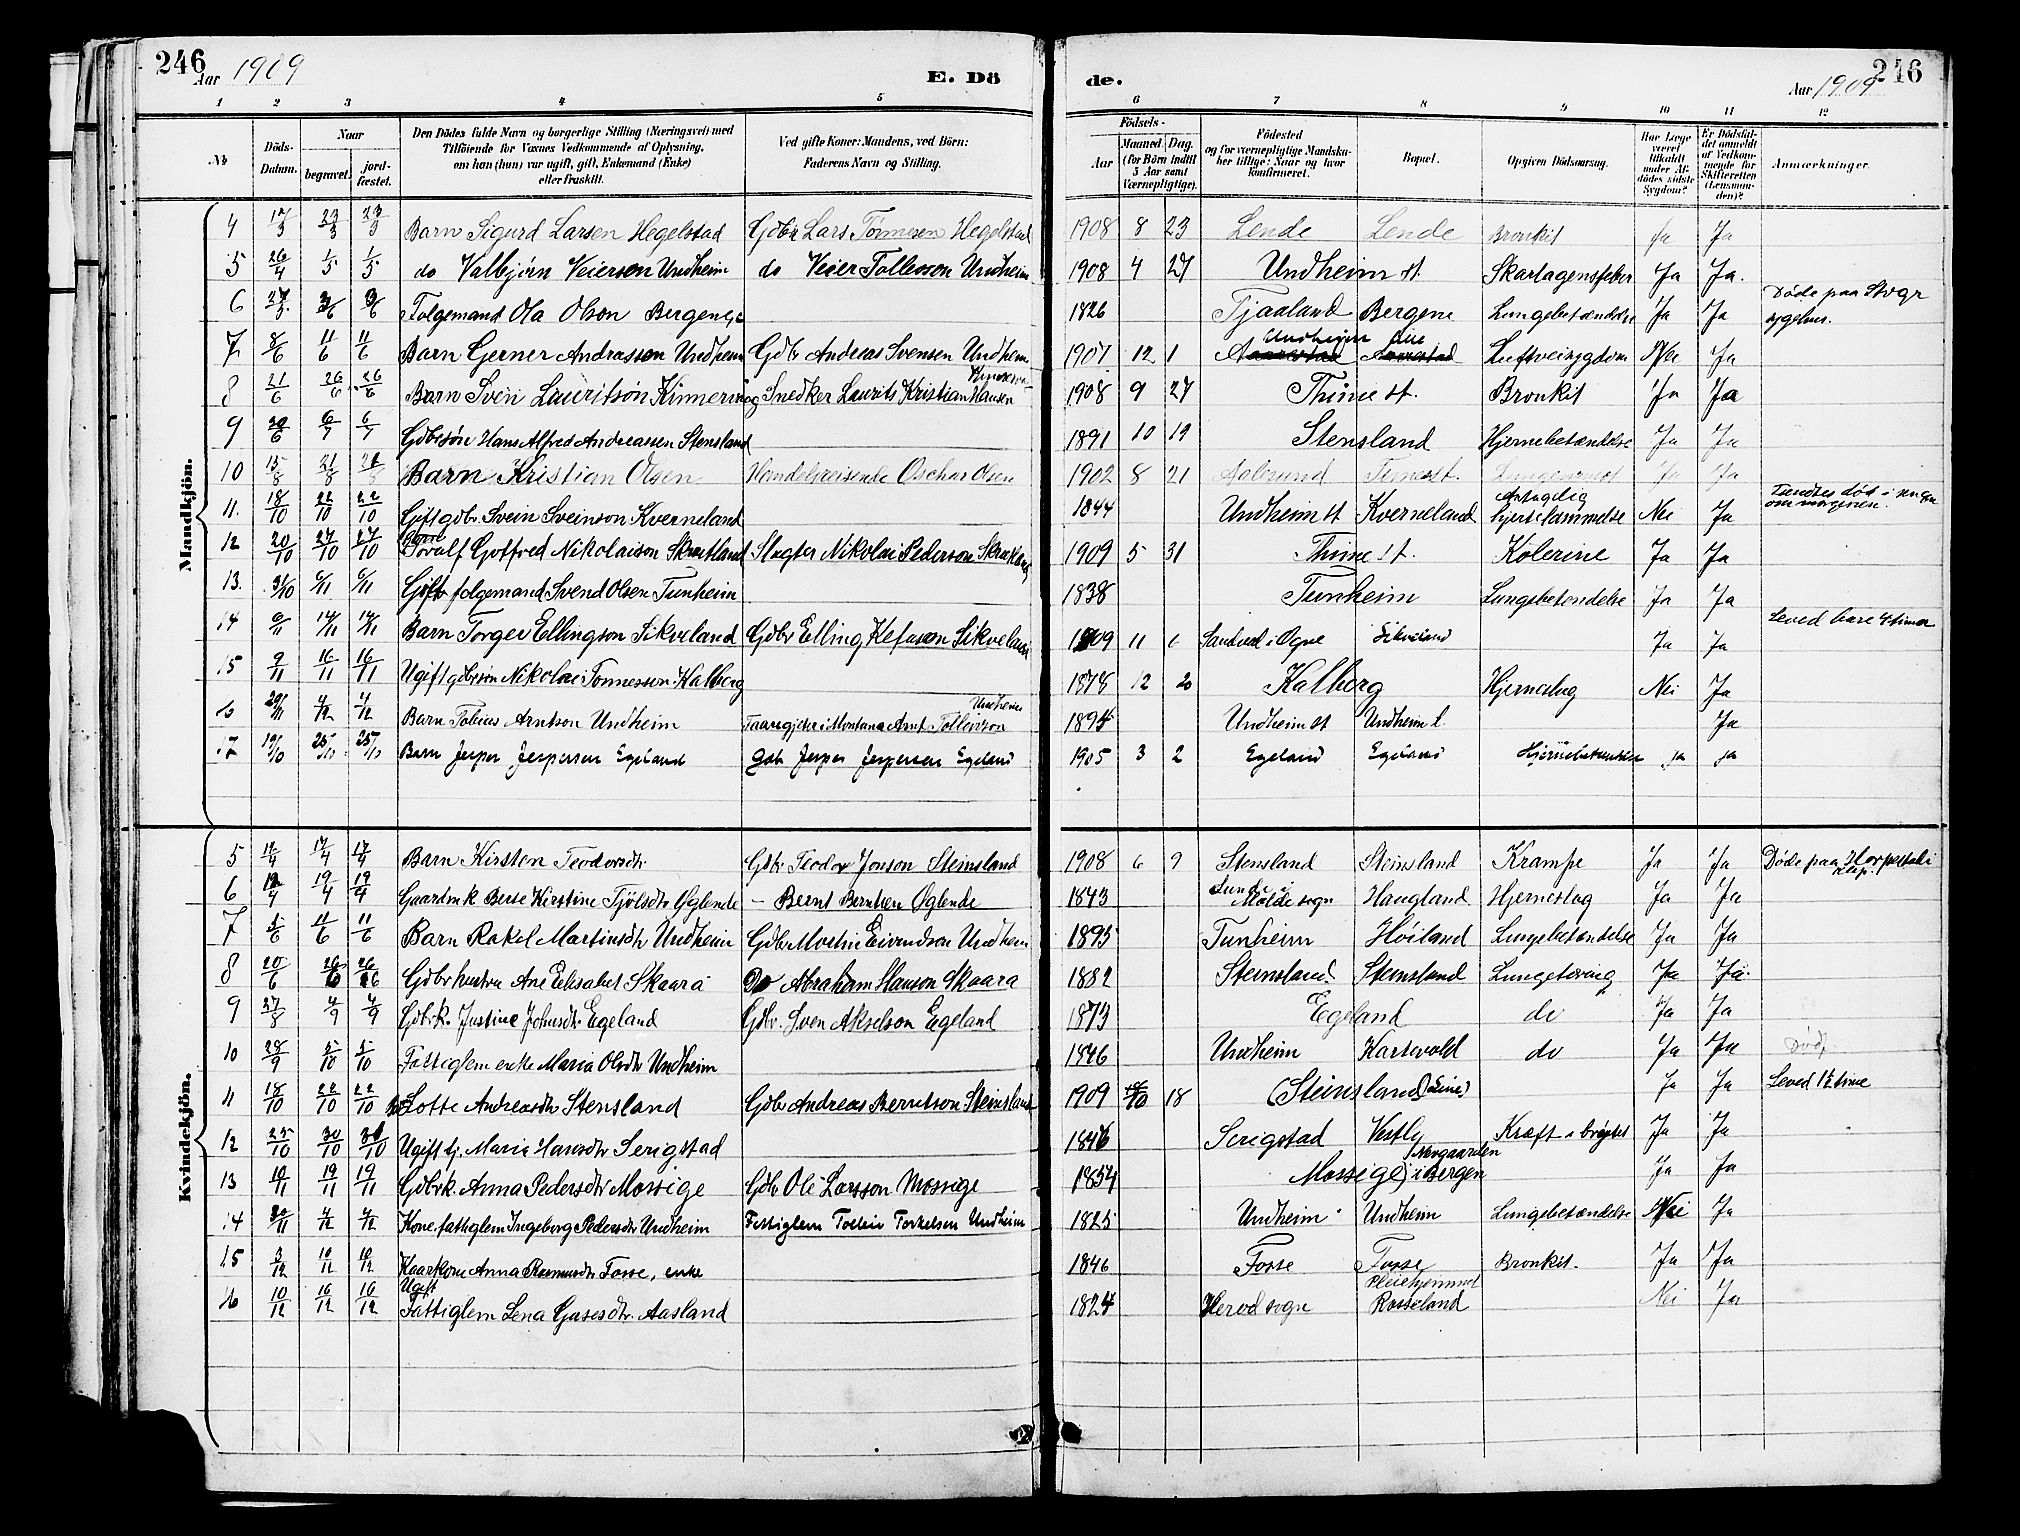 246
Aar 1909
E. Dö
de.
Aar 1909
246
1 2 3 4 5 6 7 8 9 10 11 12
№
Döds-Datum.
Naar
begravet.
jord-fæstet.
Den Dödes fulde Navn og borgerlige Stilling (Næringsvei) med
Tilföiende for Voxnes Vedkommende af Oplysning,
om han (hun) var ugift, gift, Enkemand (Enke)
eller fraskilt.
Ved gifte Koner: Mandens, ved Börn:
Faderens Navn og Stilling.
Födsels-
Aar
Maaned. Dag.
(for Börn indtil
5 Aar samt
Værnepligtige).
Födested
og for værnepligtige Mandska-
ber tillige: Naar og hvor
konfirmeret.
Bopæl.
Opgiven Dödsaarsag.
Har Læge
været
tilkaldt
under Af-
dödes sidste
Sygdom?
Er Dödsfal-
det anmeldt
af Vedkom-
mende for
Skifteretten
(Lensman-
den)?
Anmærkninger.
Mandkjön.
4 17/3 23/3 23/3 Barn Sigurd Larsen Hegelstad Gdbr Lars Tönnesen Hegelstad 1908 8 23 Lende Lende Bronkit Ja Ja
5 26/4 1/5 1/5 do Valbjörn Veierson Undheim do Veier Tollevson Undheim 1908 4 27 Undheim st. Skarlagensfeber Ja Ja.
6 Folgemand Ola Olson Bergene 1826 Tjaaland Bergene Lungebetændelse Ja Ja Döde paa Stvgr sygehus.
7 8/6 11/6 11/6 Barn Gerner Andrassen Undheim Gdbr Andreas Svensen Undheim 1907 12 1 Undheim Luftveissygdom Nei Ja
8 21/6 26/6 26/6 Barn Sven Lauritsön Kinnering Snedker Laurits Kristian Hansen 1908 9 27 Thime st. Bronkit Ja Ja
9 20/6 6/7 6/7 Gdbrsön Hans Alfred Andreassen Stensland 1891 10 19 Stensland Hjernebetændelse Ja Ja
10 15/8 21/8 21/8 Barn Kristian Olsen Handelsreisende Oschar Olsen 1902 8 21 Aalesund Time st. Ja Ja
11. 18/10 22/10 22/10 Gift gdbr. Svein Sveinson Kverneland 1844 Undheim st Kverneland Antagelig hjertelammelse Nei Ja Fandtes död i sengen om morgenen.
12 20/10 27/10 27/10 Barn Toralf Gotfred Nikolaison Skrudland Slagter Nikolai Pederson Skrudland 1909 5 31 Thime st. Kolerine Ja Ja
13. 31/10 6/11 6/11 Gift folgemand Svend Olsen Tunheim 1838 Tunheim Lungebetendelse Ja Ja
14 6/11 14/11 14/11 Barn Torger Ellingson Sikveland Gdbr Elling Kefasson Sikveland 1909 11 6 Sandved i Ogne Sikveland Ja Ja Leved bare 4 timer
15 9/11 16/11 16/11 Ugift gdbrsön Nikolai Tönnesson Kalberg 1878 12 20 Kalberg Hjerneslag Nei Ja
16 29/11 4/12 4/12 Barn Tobias Arntson Undheim Faaregjeter i Montana Arnt Tollevsson Undheim 1895 Undheim st Undheim l. Ja
17 19/10 25/10 25/10 Barn Jesper Jespersen Egeland Gdb Jesper Jespersen Egeland 1905 3 2 Egeland Egeland Hjernebetændelse Ja Ja
Kvindekjön.
5 12/4 17/4 17/4 Barn Kirsten Teodorsdtr Gdbr Teodor Jonson Steinsland 1908 6 9 Stensland Steinsland Krampe Ja Ja Döde paa Horpestad i Klep.
6 12/4 19/4 19/4 Gaardmk Berte Kirstine Tjölsdtr Öglende - Bernt Berntsen Öglende 1843 Haugland Hjerneslag Ja Ja
7 5/6 11/6 11/6 Barn Rakel Martinsdtr Undheim Gdbr Martin Eivendson Undheim 1895 Tunheim Höiland Lungebetændelse Ja Ja
8 20/6 26/6 26/6 Gdbr hustru Ane Elisabet Skaara Do Abraham Hanson Skaara 1882 Steinsland Steinsland Lungetæring Ja Ja
9 27/8 4/9 4/9 Gdbrk. Justine Johnsdtr Egeland Gdbr. Sven Akselson Egeland 1873 Egeland do Ja Ja
10 28/9 5/10 5/10 Fattiglem enke Maria Olsdtr Undheim 1846 Undheim Kartevold do Ja Ja Död,
11 18/10 22/10 22/10 Lotte Andreasdtr Stensland Gdbr Andreas Berntson Steinsland 1909 10 18 (Steinsland (Line) Ja Ja Leved 1½ time
12 25/10 30/10 30/10 Ugift tj. Maria Hansdtr Serigstad 1846 Serigstad Vestly Kræft i brystet Ja Ja
13 10/11 19/11 19/11 Gdbrk. Anna Pedersdtr Mossige Gdbr Ole Larsson Mossige 1854 Mossige) i Bergen Ja Ja
14 30/11 4/12 4/12 Kone fattiglem Ingeborg Pedersdtr Undheim Fattiglem Tollein Torkelsen Undheim 1825 Undheim Undheim Lungebetændelse Nei Ja
15 3/12 10/12 10/12 Kaarkone Anna Rasmusdtr Fosse, enke 1846 Fosse Fosse Bronkit. Ja Ja
16 10/12 16/12 16/12 Ugift Fattiglem Lena Gusesdtr. Aasland 1824 Herod sogn Pleiehjemmet Rosseland Nei Ja